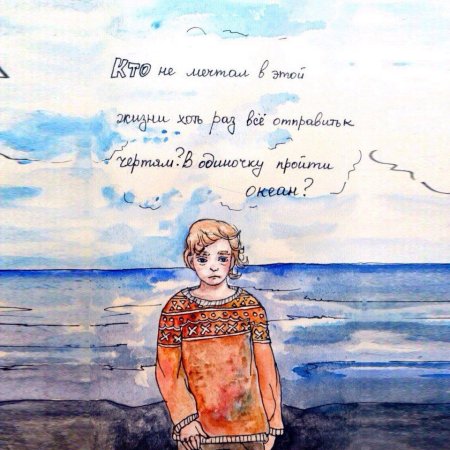 Кто не мечтал в этой
жизни хоть раз всё отправить к
чертям? В одиночку пройти
океан?